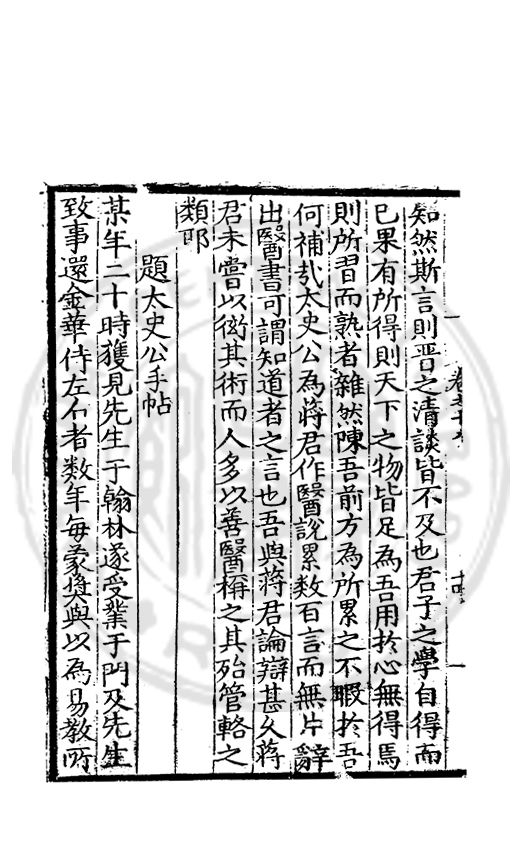 知然斯言則晋之清談皆不及也君子之學自得而
已果有所得則天下之物皆足為吾用扵心無得焉
則所習而熟者雜然陳吾前方為所累之不暇扵吾
何補㢤太史公為蔣君作醫說累数百言而無片辭
出醫書可謂知道者之言也吾與蔣君論辯甚乆蔣
君未嘗以衒其術而人多以善醫稱之其殆管輅之
類耶
題太史公手帖
某年二十時獲見先生于翰林遂受業于門及先生
致事還金華侍左右者数年每蒙奬與以為易教所